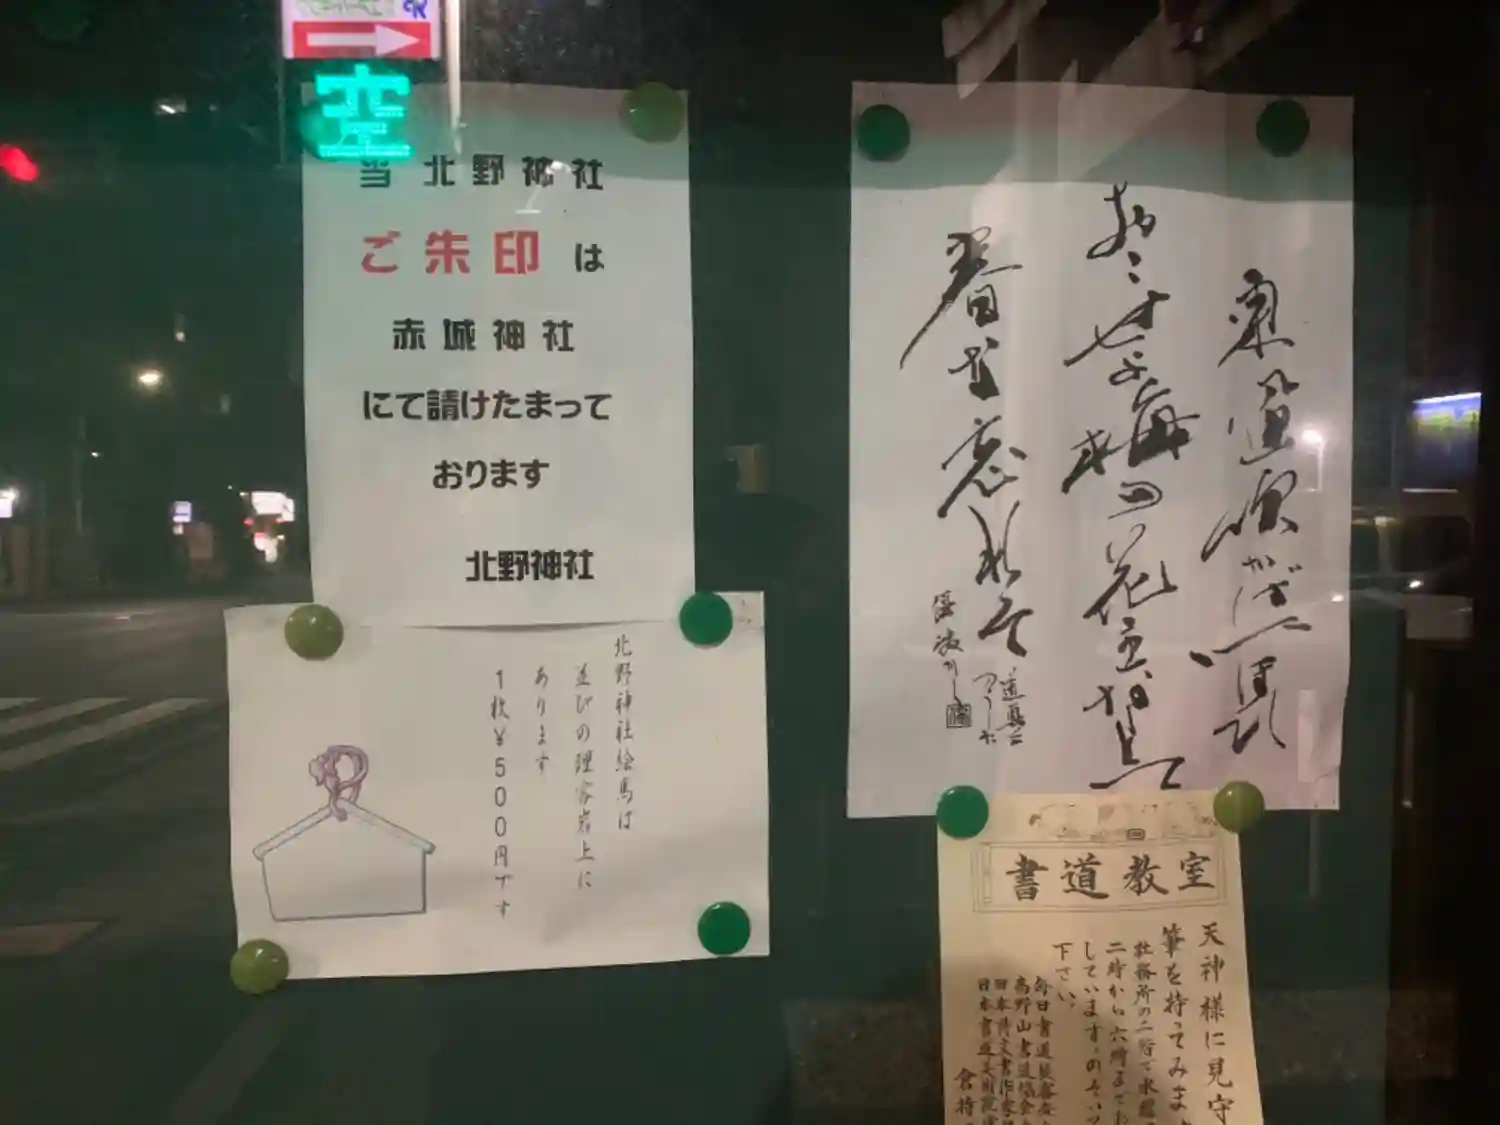 空
当北野神社
ご朱印は
赤城神社
にて請けたまって
おります
北野神社
北野神社絵馬は
並びの理容岩上に
あります
1枚¥500円です
東風吹かば
おこせよ梅の花主なし
春な忘れそ
書道教室
天神様に見守
筆を持ってみま
社務所の二階で水曜
二時から六時まで
しています。のぞいて
下さい。
毎日書道展審査
高野山書道協会
日本詩文書作家
日本書道美術院
倉持